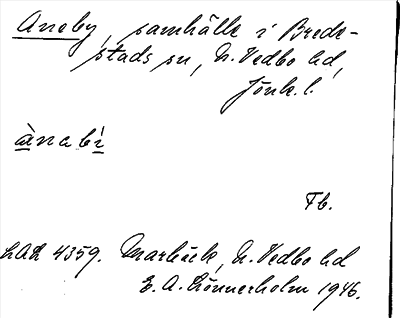 Aneby, samhälle i Brede-
stads sn, N. Vedbo hd,
Jönk. l.
ànabi
Fb.
LAL 4359. Marbäck, N. Vedbo hd
E. A. Lönnerholm 1946.